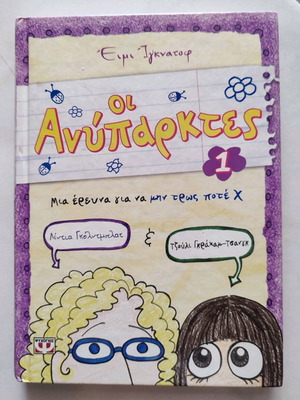 Έιμι Ίγκνατοφ
ΟΙ
Ανύπαρκτες
1
Μια έρευνα για να μην τρως ποτέ Χ
Λίντια Γκόλντμπλατ
&
Τζούλι Γκράχαμ-Τσανγκ
ΨΥΧΟΓΙΟΣ